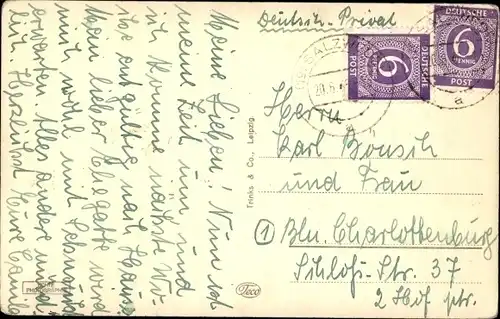 Deutsch-Privat
DEUTSCHE
6
PFENNIG
POST
DEUTSCHE
6
PFENNIG
POST
SALZW
20.6.4
a
Meine Lieben! Nun ist
meine Zeit um und
ich komme nächste Wo
che endgültig nach Hause
Mein lieber Ehegatte wird
mich wohl mit Sehnsucht
erwarten. Alles andere münd
lich Herzlichst Eure
Trinks & Co., Leipzig.
Teco
Herrn
Karl Bousch
und Frau
1 Bln. Charlottenburg
Schloß-Str. 37
2 Hof ptr.